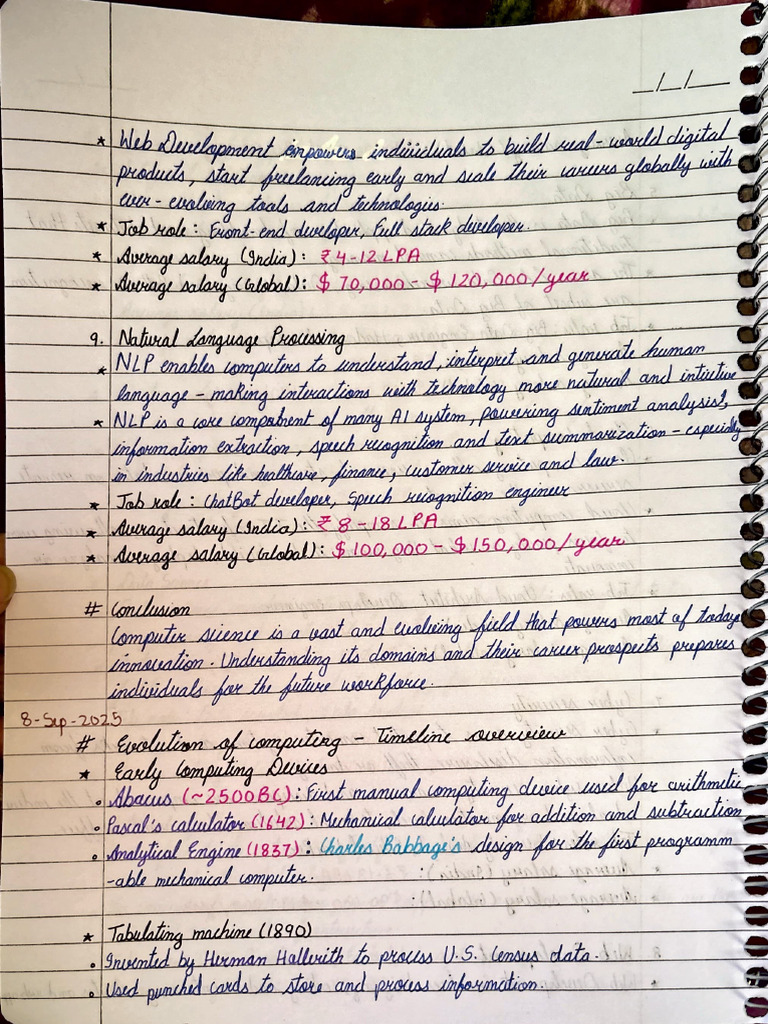 _/_/__
* Web Development empowers individuals to build real-world digital
products, start freelancing early and scale their careers globally with
ever-evolving tools and technologies.
* Job role: Front-end developer, Full stack developer.
* Average salary (India): ₹4-12 LPA
* Average salary (Global): $70,000 - $120,000/year
9. Natural Language Processing
* NLP enables computers to understand, interpret and generate human
language - making interactions with technology more natural and intuitive
* NLP is a core component of many AI system, powering sentiment analysis,
information extraction, speech recognition and text summarization - especially
in industries like healthcare, finance, customer service and law.
* Job role: ChatBot developer, Speech recognition engineer
* Average salary (India): ₹8-18 LPA
* Average salary (Global): $100,000 - $150,000/year
# Conclusion
Computer science is a vast and evolving field that powers most of today
innovation. Understanding its domains and their career prospects prepares
individuals for the future workforce.
8-Sep-2025
# Evolution of computing - Timeline overview
* Early Computing Devices
• Abacus (~2500BC): First manual computing device used for arithmetic
• Pascal's calculator (1642): Mechanical calculator for addition and subtraction
• Analytical Engine (1837): Charles Babbage's design for the first programm
-able mechanical computer.
* Tabulating machine (1890)
• Invented by Herman Hallerith to process U.S. Census data.
• Used punched cards to store and process information.